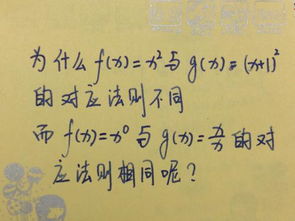 为什么 f(x)=x²与 g(x)=(x+1)²
的对应法则不同
而 f(x)=x⁰ 与 g(x)=x/x 的对
应法则相同呢?